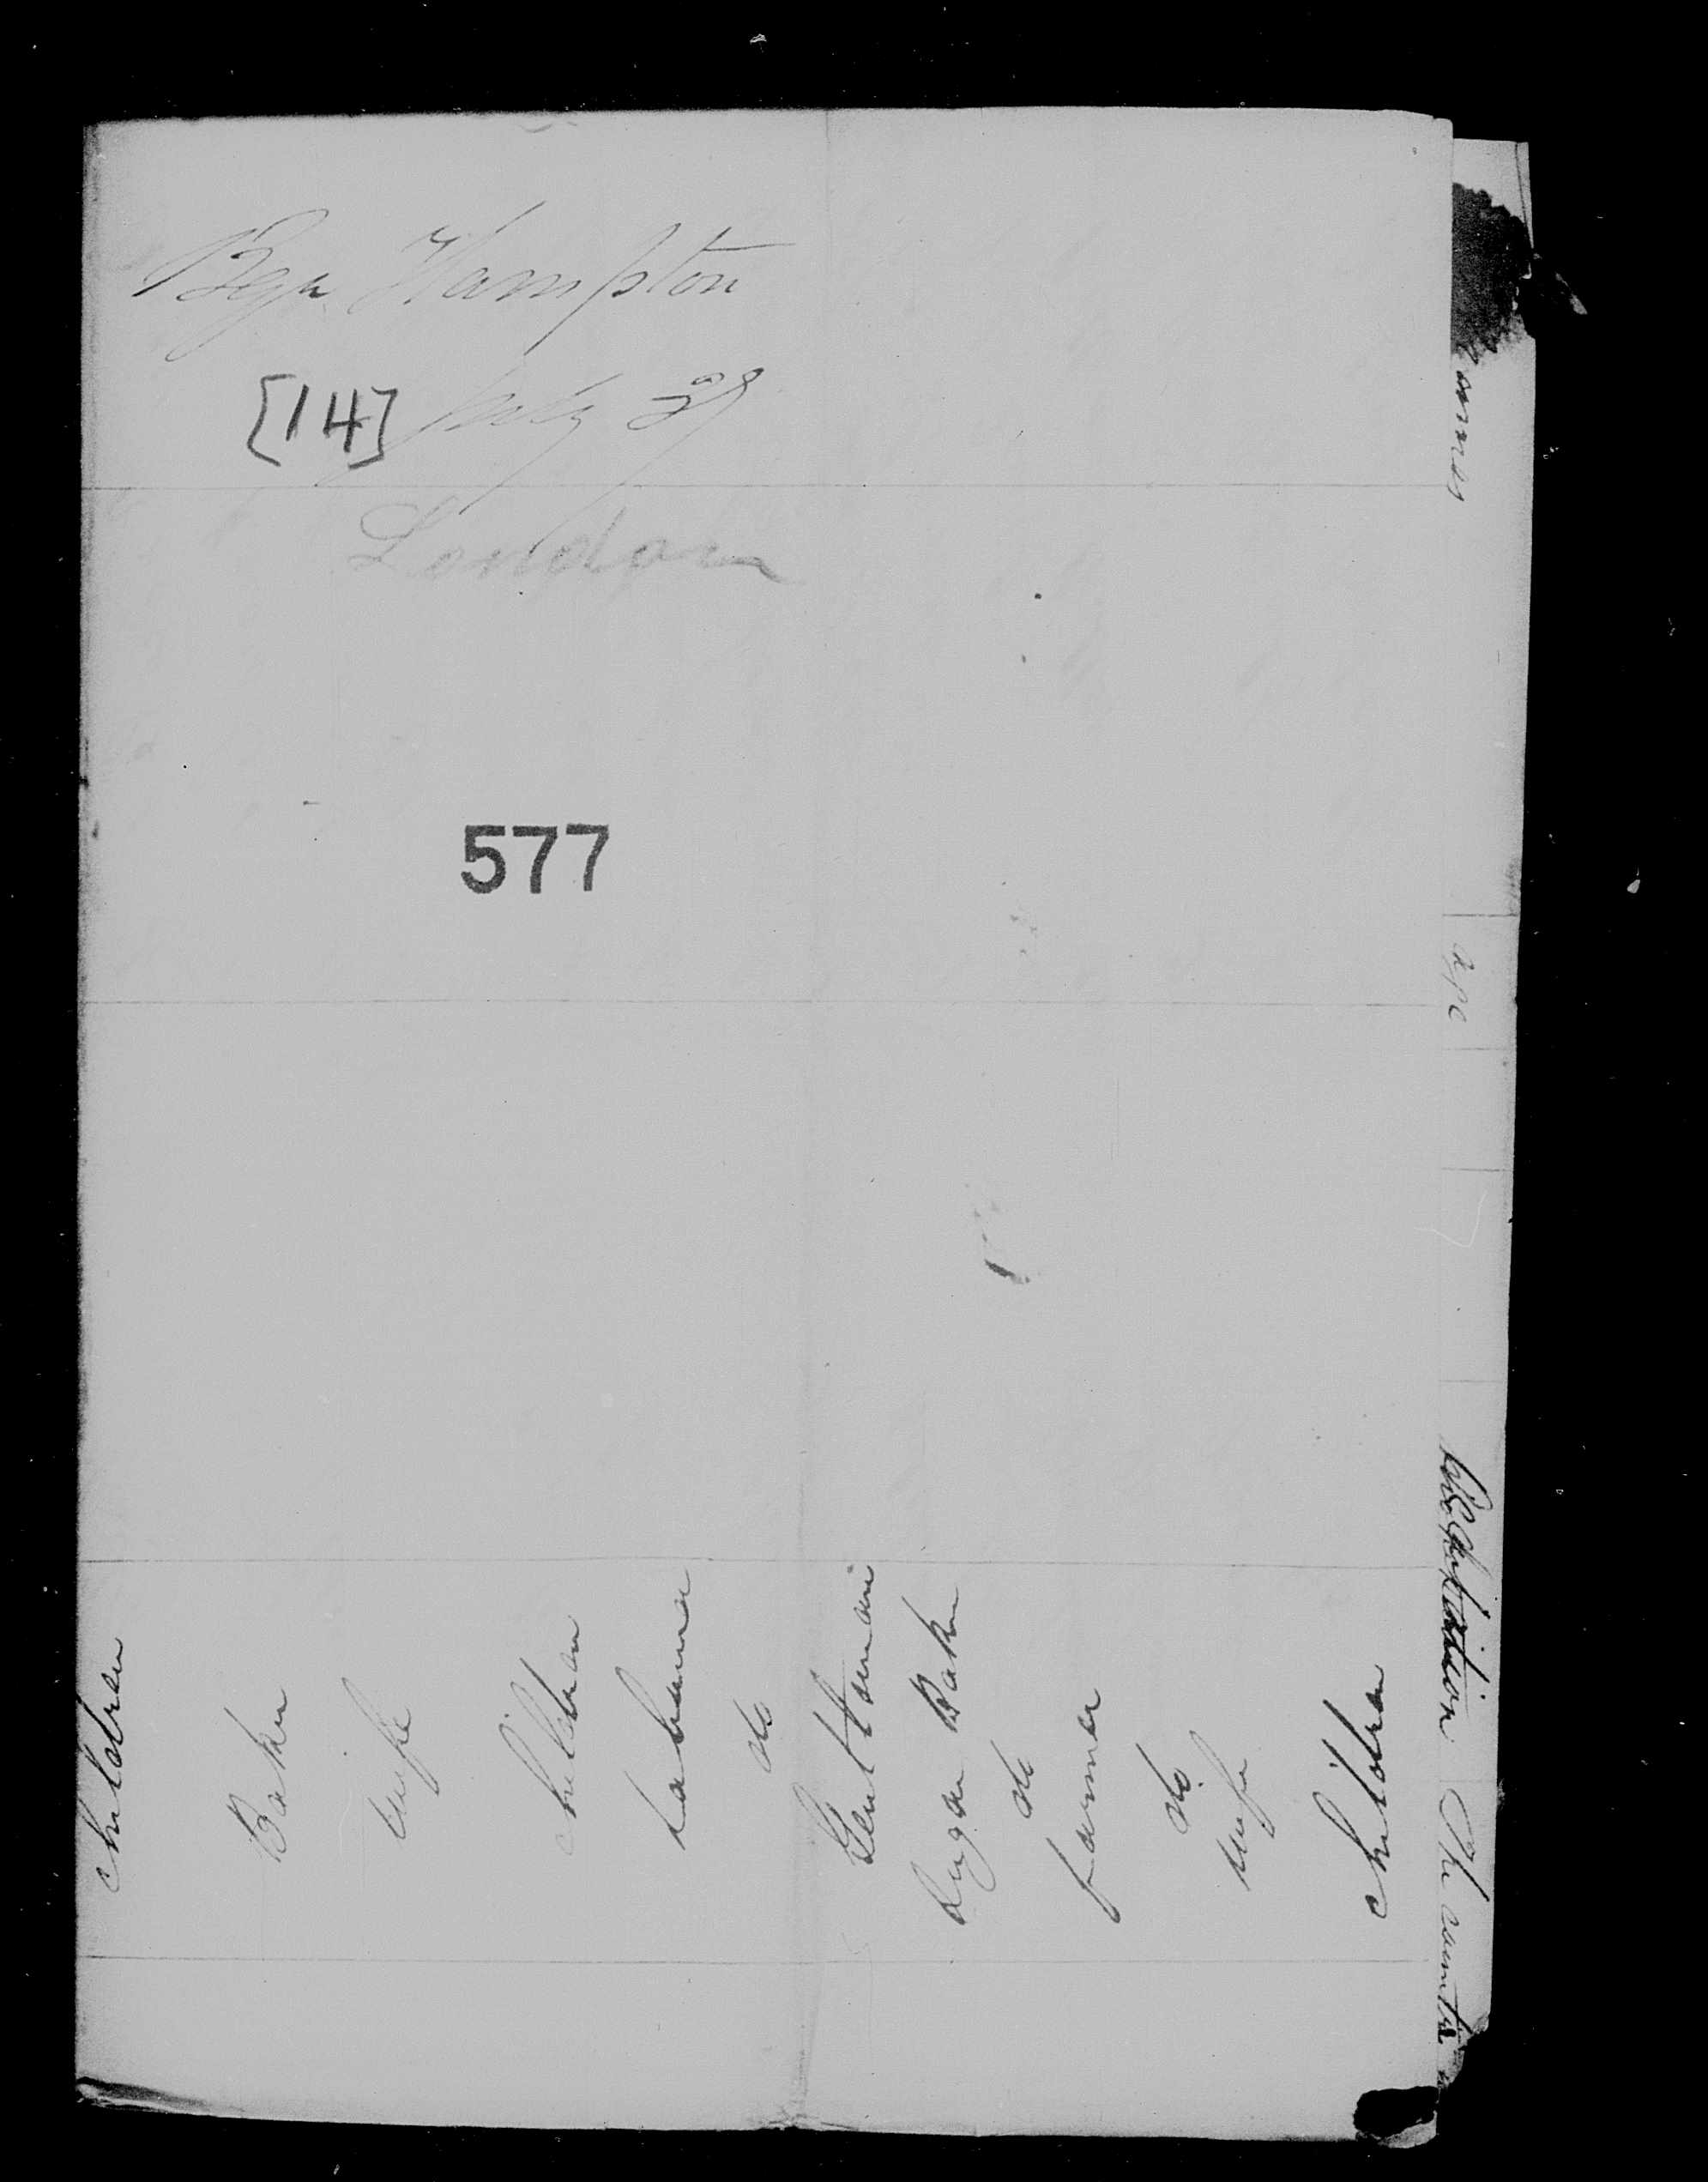 Bgn Hampton
[14] July 29
London
577
children
Baker
wife
children
Labourer
do
Gentleman
Sugar Baker
do
farmer
do
wife
children
names
age
The country